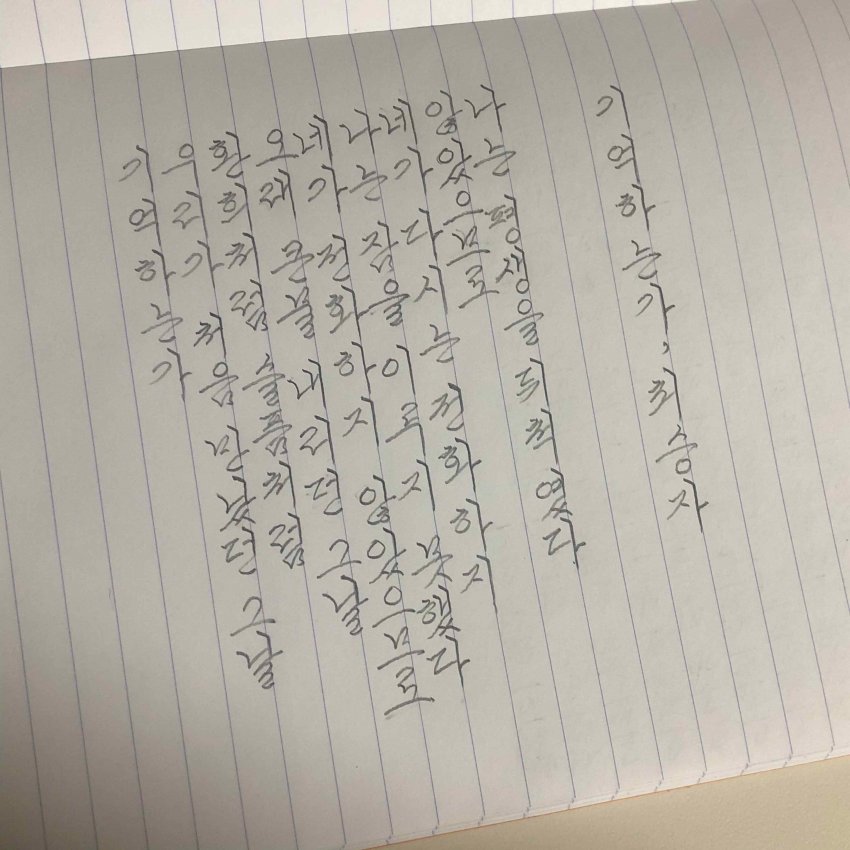 기억하는가
우리가 처음 만났던 그 날
환희처럼 슬픔처럼
오래 큰물 내리던 그 날
네가 전화하지 않았으므로
나는 잠을 이루지 못했다
네가 다시는 전화하지
않았으므로
나는 평생을 뒤척였다
기억하는가, 최승자